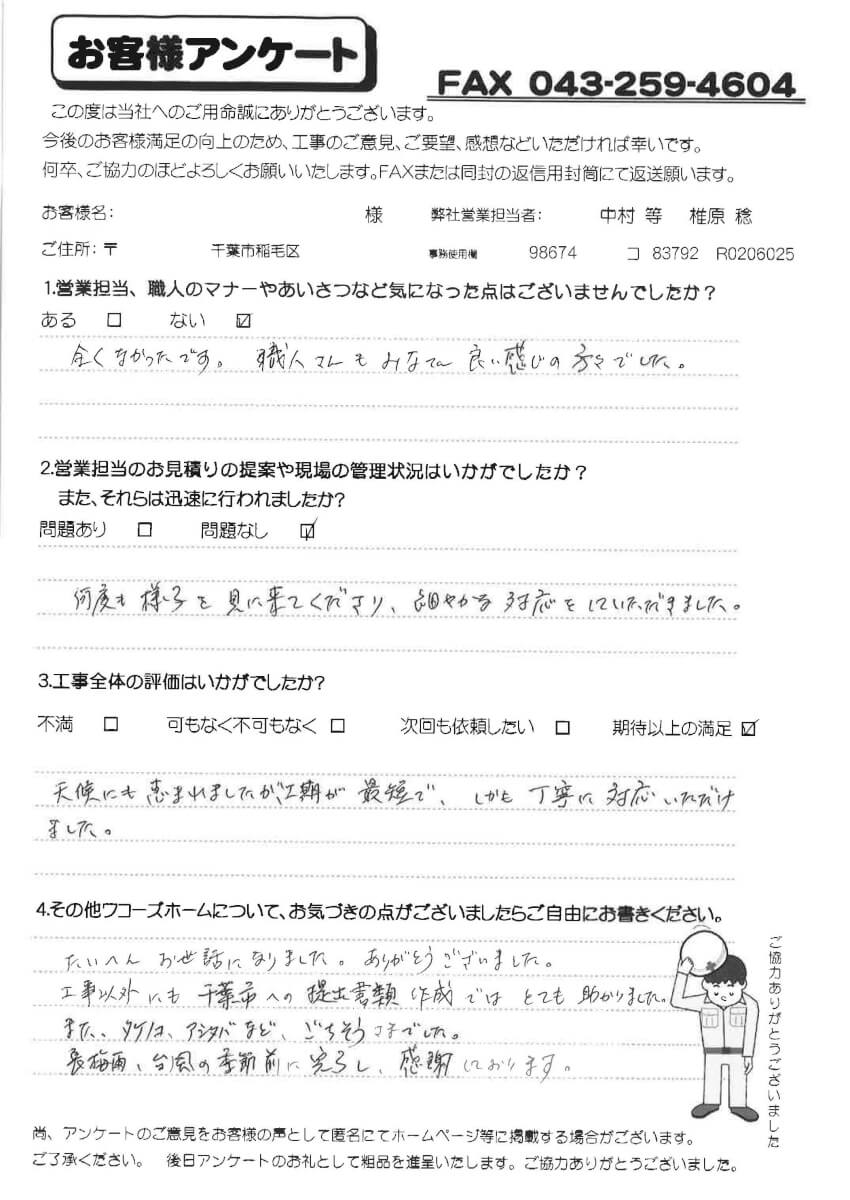 お客様アンケート
FAX 043-259-4604
この度は当社へのご用命誠にありがとうございます。
今後のお客様満足の向上のため、工事のご意見、ご要望、感想などいただければ幸いです。
何卒、ご協力のほどよろしくお願いいたします。FAXまたは同封の返信用封筒にて返送願います。
お客様名： 様 弊社営業担当者： 中村 等 椎原 稔
ご住所：〒 千葉市稲毛区 事務使用欄 98674 コ 83792 R0206025
1.営業担当、職人のマナーやあいさつなど気になった点はございませんでしたか？
ある □ ない ☑
全くなかったです。職人さんもみなさん良い感じの方々でした。
2.営業担当のお見積りの提案や現場の管理状況はいかがでしたか？
また、それらは迅速に行われましたか？
問題あり □ 問題なし ☑
何度も様子を見に来てくださり、細やかな対応をしていただきました。
3.工事全体の評価はいかがでしたか？
不満 □ 可もなく不可もなく □ 次回も依頼したい □ 期待以上の満足 ☑
天候にも恵まれましたが、工期が最短で、しかも丁寧に対応いただけ
ました。
4.その他ワコーズホームについて、お気づきの点がございましたらご自由にお書きください。
たいへんお世話になりました。ありがとうございました。
工事以外にも千葉市への提出書類作成ではとても助かりました。
また、タケノコ、アシタバなど、ごちそうさまでした。
長梅雨、台風の季節前に完了し、感謝しております。
ご協力ありがとうございました
尚、アンケートのご意見をお客様の声として匿名にてホームページ等に掲載する場合がございます。
ご了承ください。 後日アンケートのお礼として粗品を進呈いたします。ご協力ありがとうございました。